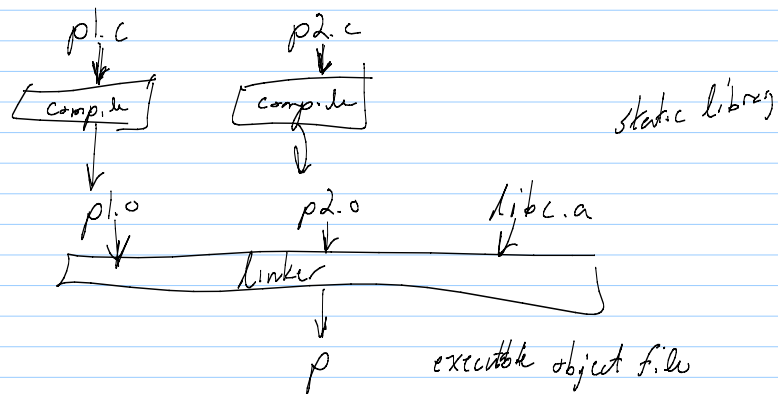 p1.c p2.c
compile compile
static library
p1.o p2.o libc.a
linker
p
executable object file